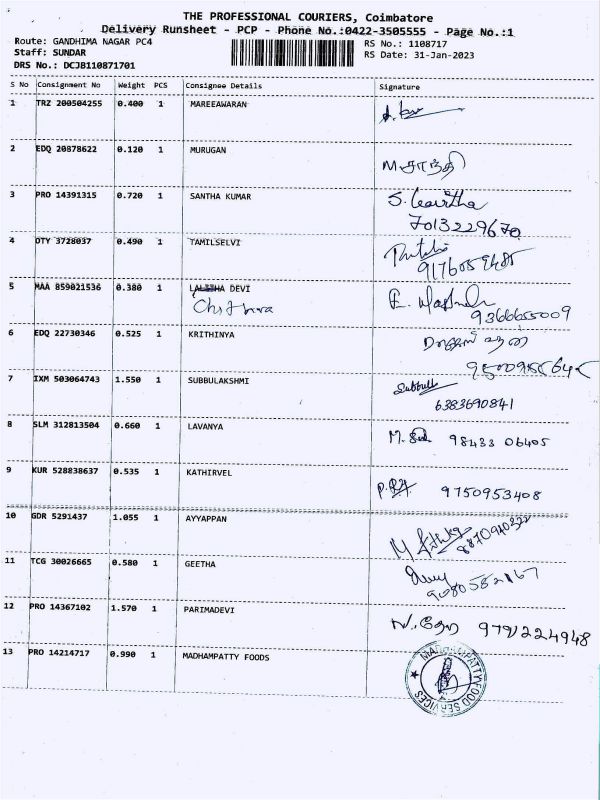 THE PROFESSIONAL COURIERS, Coimbatore
Delivery Runsheet - PCP - Phone No.:0422-3505555 - Page No.:1
Route: GANDHIMA NAGAR PC4 RS No.: 1108717
Staff: SUNDAR RS Date: 31-Jan-2023
DRS No.: DCJB110871701
S No Consignment No Weight PCS Consignee Details Signature
1 TRZ 200504255 0.400 1 MAREEAWARAN
2 EDQ 20878622 0.120 1 MURUGAN
M சாந்தி
3 PRO 14391315 0.720 1 SANTHA KUMAR
7013229670
4 DTY 3728037 0.490 1 TAMILSELVI
5 MAA 859021536 0.380 1 LALITHA DEVI
Chithra
9366655009
6 EDQ 22730346 0.525 1 KRITHINYA
7 IXM 503064743 1.550 1 SUBBULAKSHMI
6383690841
8 SLM 312813504 0.660 1 LAVANYA
98433 06405
9 KUR 528838637 0.535 1 KATHIRVEL
9750953408
10 GDR 5291437 1.055 1 AYYAPPAN
11 TCG 30026665 0.580 1 GEETHA
12 PRO 14367102 1.570 1 PARIMADEVI
9791224948
13 PRO 14214717 0.990 1 MADHAMPATTY FOODS
MADHAMPATTY FOOD SERVICES